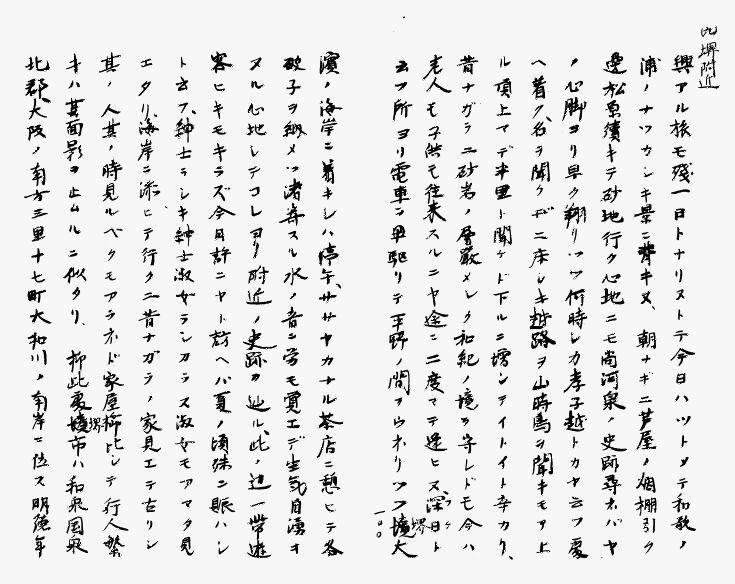 九堺附近
興アル旅モ残一日トナリヌトテ今日ハツトメテ和歌ノ
浦ノナツカシキ景ニ背キヌ、朝ナギニ芦屋ノ烟棚引ク
邊松原續キテ砂地行ク心地ニモ尚河泉ノ史跡尋ネバヤ
ノ心脚ヨリ早ク翔リツツ何時シカ孝子越トカヤ云フ處
ヘ着ク、名ヲ聞クダニ床シキ越路ヲ山時鳥ヲ聞キモアヘ
ル頂上マデ半里ト聞ケド下ルニ
イトイト辛カリ、
昔ナガラニ砂岩ノ層嚴メシク和紀ノ境ヲ守レドモ今ハ
老人モ子供モ往来スルニヤ途ニ二度マデ逢ヒヌ、深日ト
云フ所ヨリ電車ニ乗駆リテ平野ノ間ヲウネリツツ堺大
一〇〇
濱ノ海岸ニ着キシハ停午、ササヤカナル茶店ニ憩ヒテ各
破子ヲ納メツ渚寄スル水ノ音ニ労モ覚エデ生気自湧オ
ヌル心地シテコレヨリ附近ノ史跡ヲ辿ル、此ノ辺一帯遊
客ヒキモキラズ今日許ニヤト訪ヘバ夏ノ頃殊ニ賑ハシ
ト云フ、紳士ラシキ紳士淑女ランカラヌ淑女モアマタ見
エタリ、海岸ニ添ヒテ行クニ昔ナガラノ家見エテ古リシ
其ノ人其ノ時見ルベクモアラネド家屋櫛比シテ行人繁
キハ其面影ヲ止ムルニ似タリ、抑此處堺市ハ和泉国泉
北郡、大阪ノ南方三里十七町大和川ノ南岸ニ位ス明應年